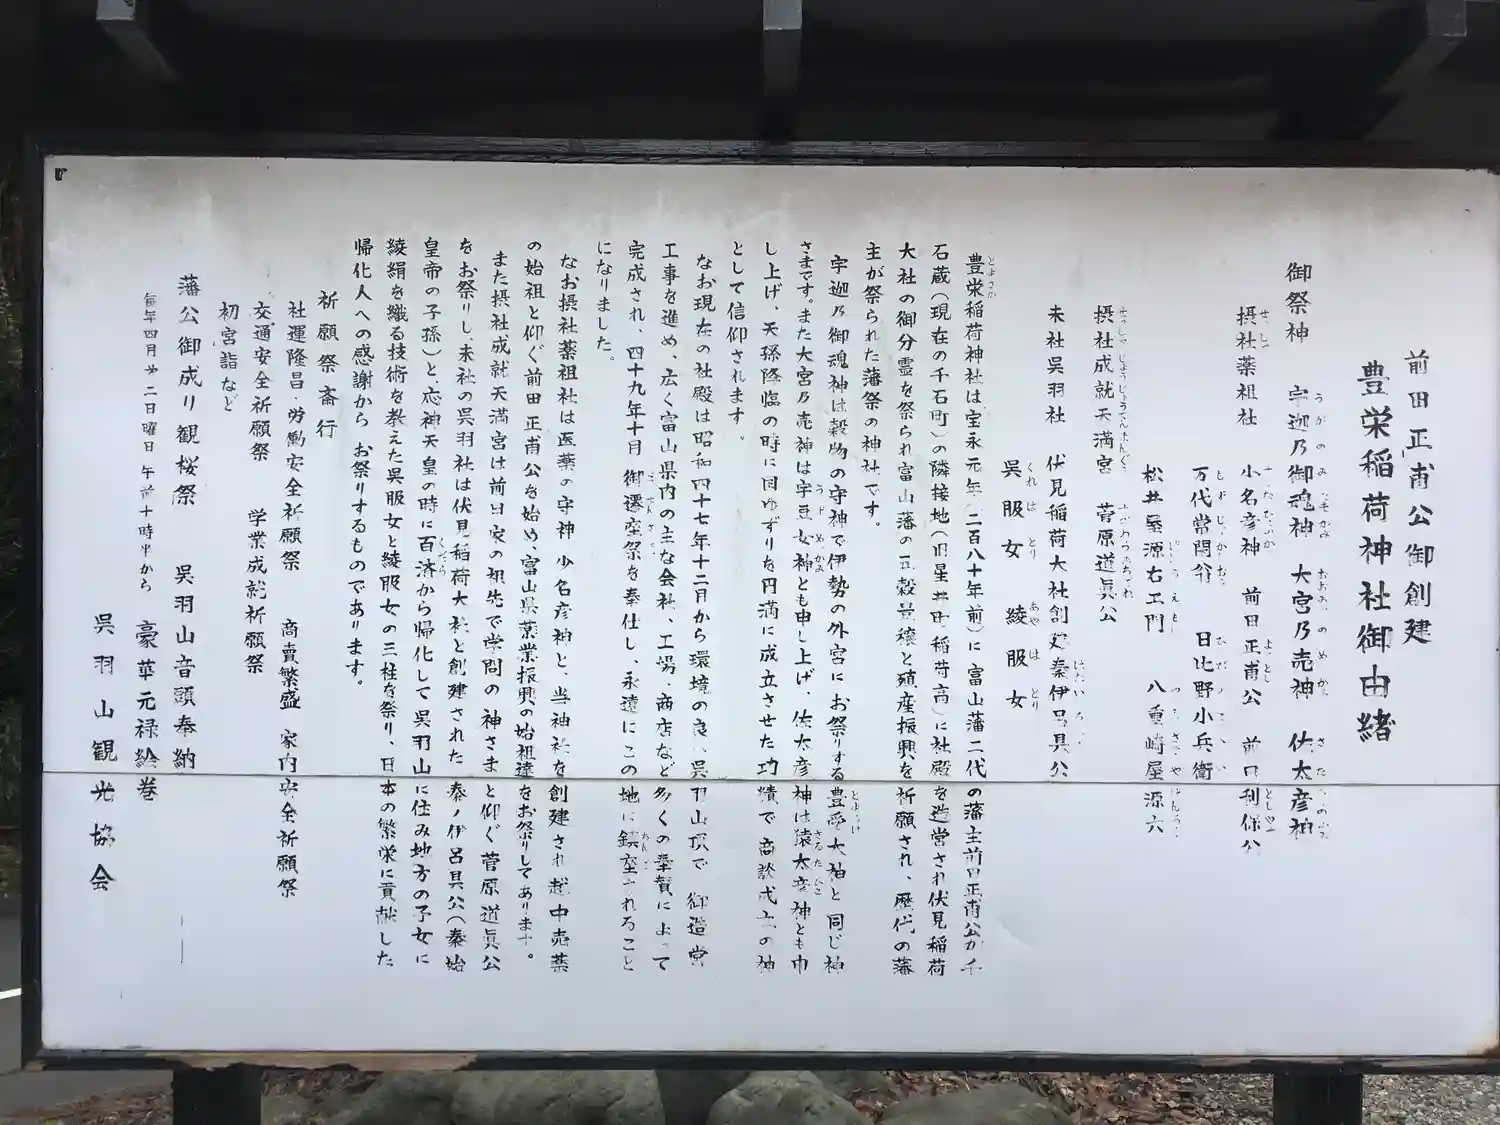 前田正甫公御創建
豊栄稲荷神社御由緒
御祭神 宇迦乃御魂神 大宮乃売神 佐太彦神
摂社薬祖社 少名彦神 前田正甫公 前田利保公
万代常閑翁 日比野小兵衛
松井屋源右エ門 八重崎屋源六
摂社成就天満宮 菅原道眞公
末社呉羽社 伏見稲荷大社創建秦伊呂具公
呉服女 綾服女
豊栄稲荷神社は宝永元年(二百八十年前)に富山藩二代の藩主前田正甫公が千
石蔵(現在の千石町)の隣接地(旧星井町稲荷高)に社殿を造営され伏見稲荷
大社の御分霊を祭られ富山藩の五穀豊穣と殖産振興を祈願され、歴代の藩
主が祭られた藩祭の神社です。
宇迦乃御魂神は穀物の守神で伊勢の外宮にお祭りする豊受大神と同じ神
さまです。また大宮乃売神は宇豆女神とも申し上げ、佐太彦神は猿太彦神とも申
し上げ、天孫降臨の時に国ゆずりを円満に成立させた功績で商談成立の神
として信仰されます。
なお現在の社殿は昭和四十七年十二月から環境の良い呉羽山頂で御造営
工事を進め、広く富山県内の主な会社、工場、商店など多くの奉賛によって
完成され、四十九年十月御遷座祭を奉仕し、永遠にこの地に鎮座されること
になりました。
なお摂社薬祖社は医薬の守神少名彦神と、当神社を創建され越中売薬
の始祖と仰ぐ前田正甫公を始め、富山県薬業振興の始祖達をお祭りしてあります。
また摂社成就天満宮は前田家の祖先で学問の神さまと仰ぐ菅原道眞公
をお祭りし、末社の呉羽社は伏見稲荷大社を創建された秦ノ伊呂具公(秦始
皇帝の子孫)と、応神天皇の時に百済から帰化して呉羽山に住み地方の子女に
綾絹を織る技術を教えた呉服女と綾服女の三柱を祭り、日本の繁栄に貢献した
帰化人への感謝からお祭りするものであります。
祈願祭斎行
社運隆昌・労働安全祈願祭 商売繁盛 家内安全祈願祭
交通安全祈願祭 学業成就祈願祭
初宮詣など
藩公御成り観桜祭 呉羽山音頭奉納
毎年四月第二日曜日 午前十時半から 豪華元禄絵巻
呉羽山観光協会